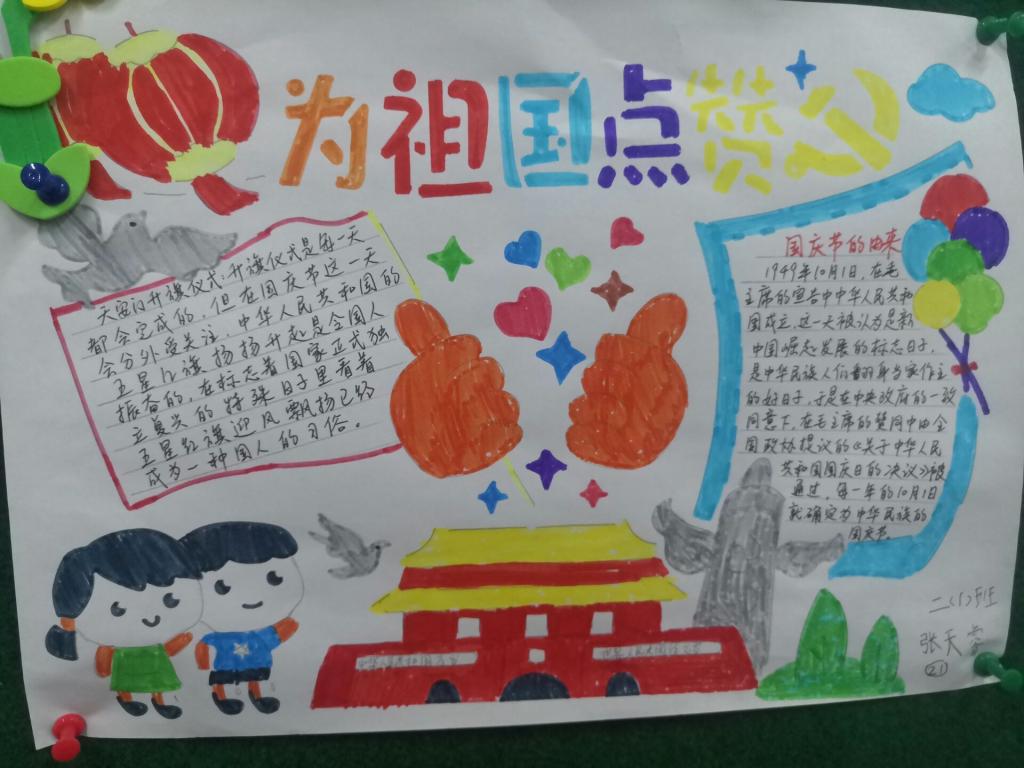 为祖国点赞
天安门升旗仪式:升旗仪式是每一天
都会完成的,但在国庆节这一天
会分外受关注.中华人民共和国的
五星红旗扬扬升起是全国人
振奋的,在标志着国家正式独
立复兴的特殊日子里看着
五星红旗迎风飘扬已经
成为一种国人的习俗。
国庆节的由来
1949年10月1日,在毛
主席的宣告中中华人民共和
国成立,这一天被认为是新
中国崛起发展的标志日子,
是中华民族人们翻身当家作主
的好日子,于是在中央政府的一致
同意下,在毛主席的赞同中由全
国政协提议的《关于中华人民
共和国国庆日的决议》被
通过,每一年的10月1日
就确定为中华民族的
国庆节
二(1)班
张天
21